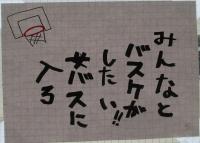 みんなと
バスケが
したい!!
女バスに
入ろ